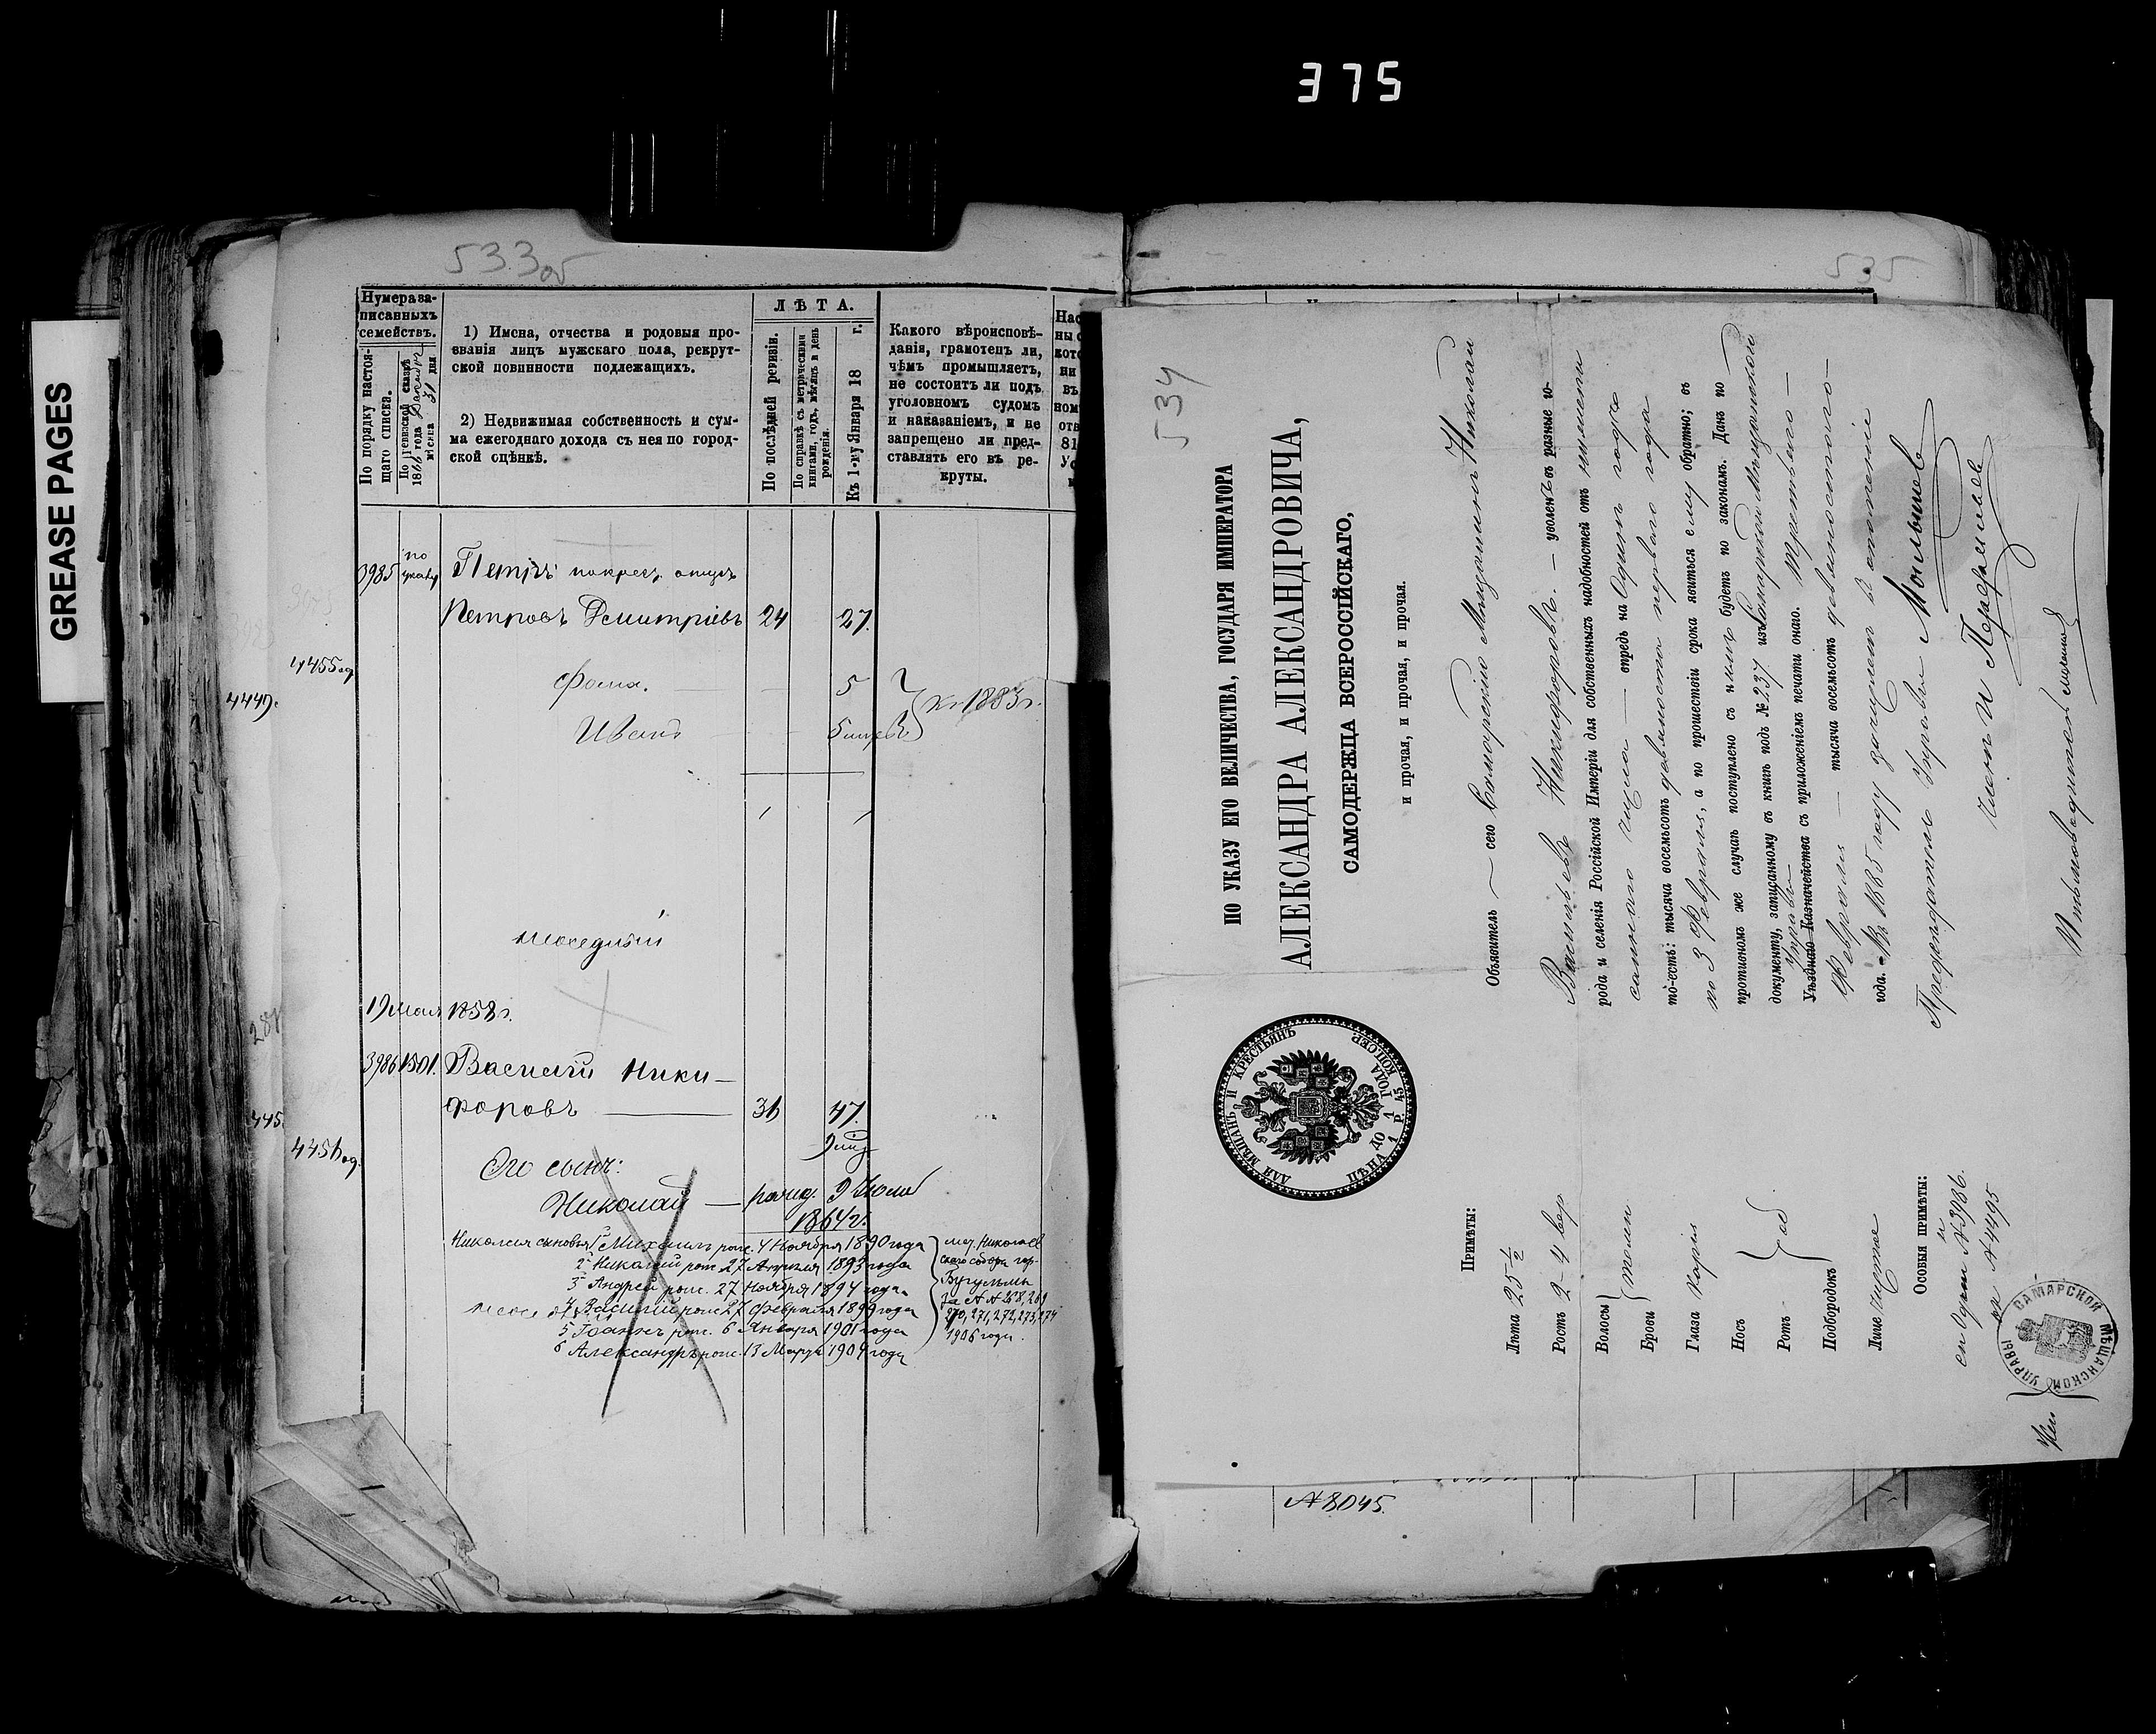 375
GREASE PAGES
533об
Нумера за-
писанныхъ
семействъ.
По порядку настоя-
щаго списка.
По ревизской сказкѣ
1866 года
мѣсяца 31 дня
1) Имена, отчества и родовыя про-
званія лицъ мужскаго пола, рекрут-
ской повинности подлежащихъ.
2) Недвижимая собственность и сум-
ма ежегоднаго дохода съ нея по город-
ской оцѣнкѣ.
ЛѢТА.
По послѣдней ревизіи.
По справкѣ съ метрическими
книгами, годъ, мѣсяцъ и день
рожденія.
Къ 1-му Января 18 г.
Какого вѣроисповѣ-
данія, грамотенъ ли,
чѣмъ промышляетъ,
не состоитъ ли подъ
уголовномъ судомъ
и наказаніемъ, и не
запрещено ли пред-
ставлять его въ ре-
круты.
3985 по указу Петръ по крест. отцѣ
Петровъ Дмитріевъ 24 27.
4455 од
4449.
Фома. — — 5
Иванъ — — 5 мѣсяц. } къ 1883 г.
19 мая 1858 г.
3986 1501. Василій Ники-
форовъ — 31 47.
445
4456 од.
Его сынъ:
Николай — рожд. 9 Іюля
1864 г.
Николая сыновья 1. Михаилъ рож. 4 Ноября 1890 года
2 Николай рож. 27 Апрѣля 1893 года
3 Андрей рож. 27 Ноября 1894 года
4 Василій рож. 27 Февраля 1899 года
5 Іоаннъ рож. 6 Января 1901 года
6 Александръ рож. 13 Марта 1904 года
мет. Николаев
скаго собора гор.
Бугульмы
за № № 268, 269
270, 271, 272, 273, 274
1906 года.
535
534
ПО УКАЗУ ЕГО ВЕЛИЧЕСТВА, ГОСУДАРЯ ИМПЕРАТОРА
АЛЕКСАНДРА АЛЕКСАНДРОВИЧА,
САМОДЕРЖЦА ВСЕРОССІЙСКАГО,
и прочая, и прочая, и прочая.
Объявитель — сего Самарскій Мѣщанинъ Николай
Васильевъ Никифоровъ. — уволенъ въ разные го-
рода и селенія Россійской Имперіи для собственныхъ надобностей отъ нижеписаннаго числа — впредь на Одинъ годъ
то-есть: тысяча восемьсотъ девяносто перваго года
по 3 Февраля, а по прошествіи срока явиться ему обратно; въ
противномъ же случаѣ поступлено съ нимъ будетъ по законамъ. Данъ по
документу, записанному въ книгѣ подъ № 237 изъ Самарской Мѣщанской
Управы
Уѣзднаго Казначейства съ приложеніемъ печати онаго. Третьяго —
Февраля — тысяча восемьсотъ девяностаго —
года. — Въ 1885 году зачисленъ въ ополченіе
Предсѣдатель Управы
Членъ
Письмоводитель
ДЛЯ МѢЩАНЪ И КРЕСТЬЯНЪ
ДО 1 ГОДА
ЦѢНА 1 Р. 45 КОП. СЕР.
Примѣты:
Лѣта 25 ½
Ростъ 2 – 4 вер
Волосы
Брови } темн
Глаза карія
Носъ
Ротъ } об
Подбородокъ
Лице чистое
Особыя примѣты:
№ 3986.
№ 4495
САМАРСКОЙ МѢЩАНСКОЙ УПРАВЫ
№ 8045.